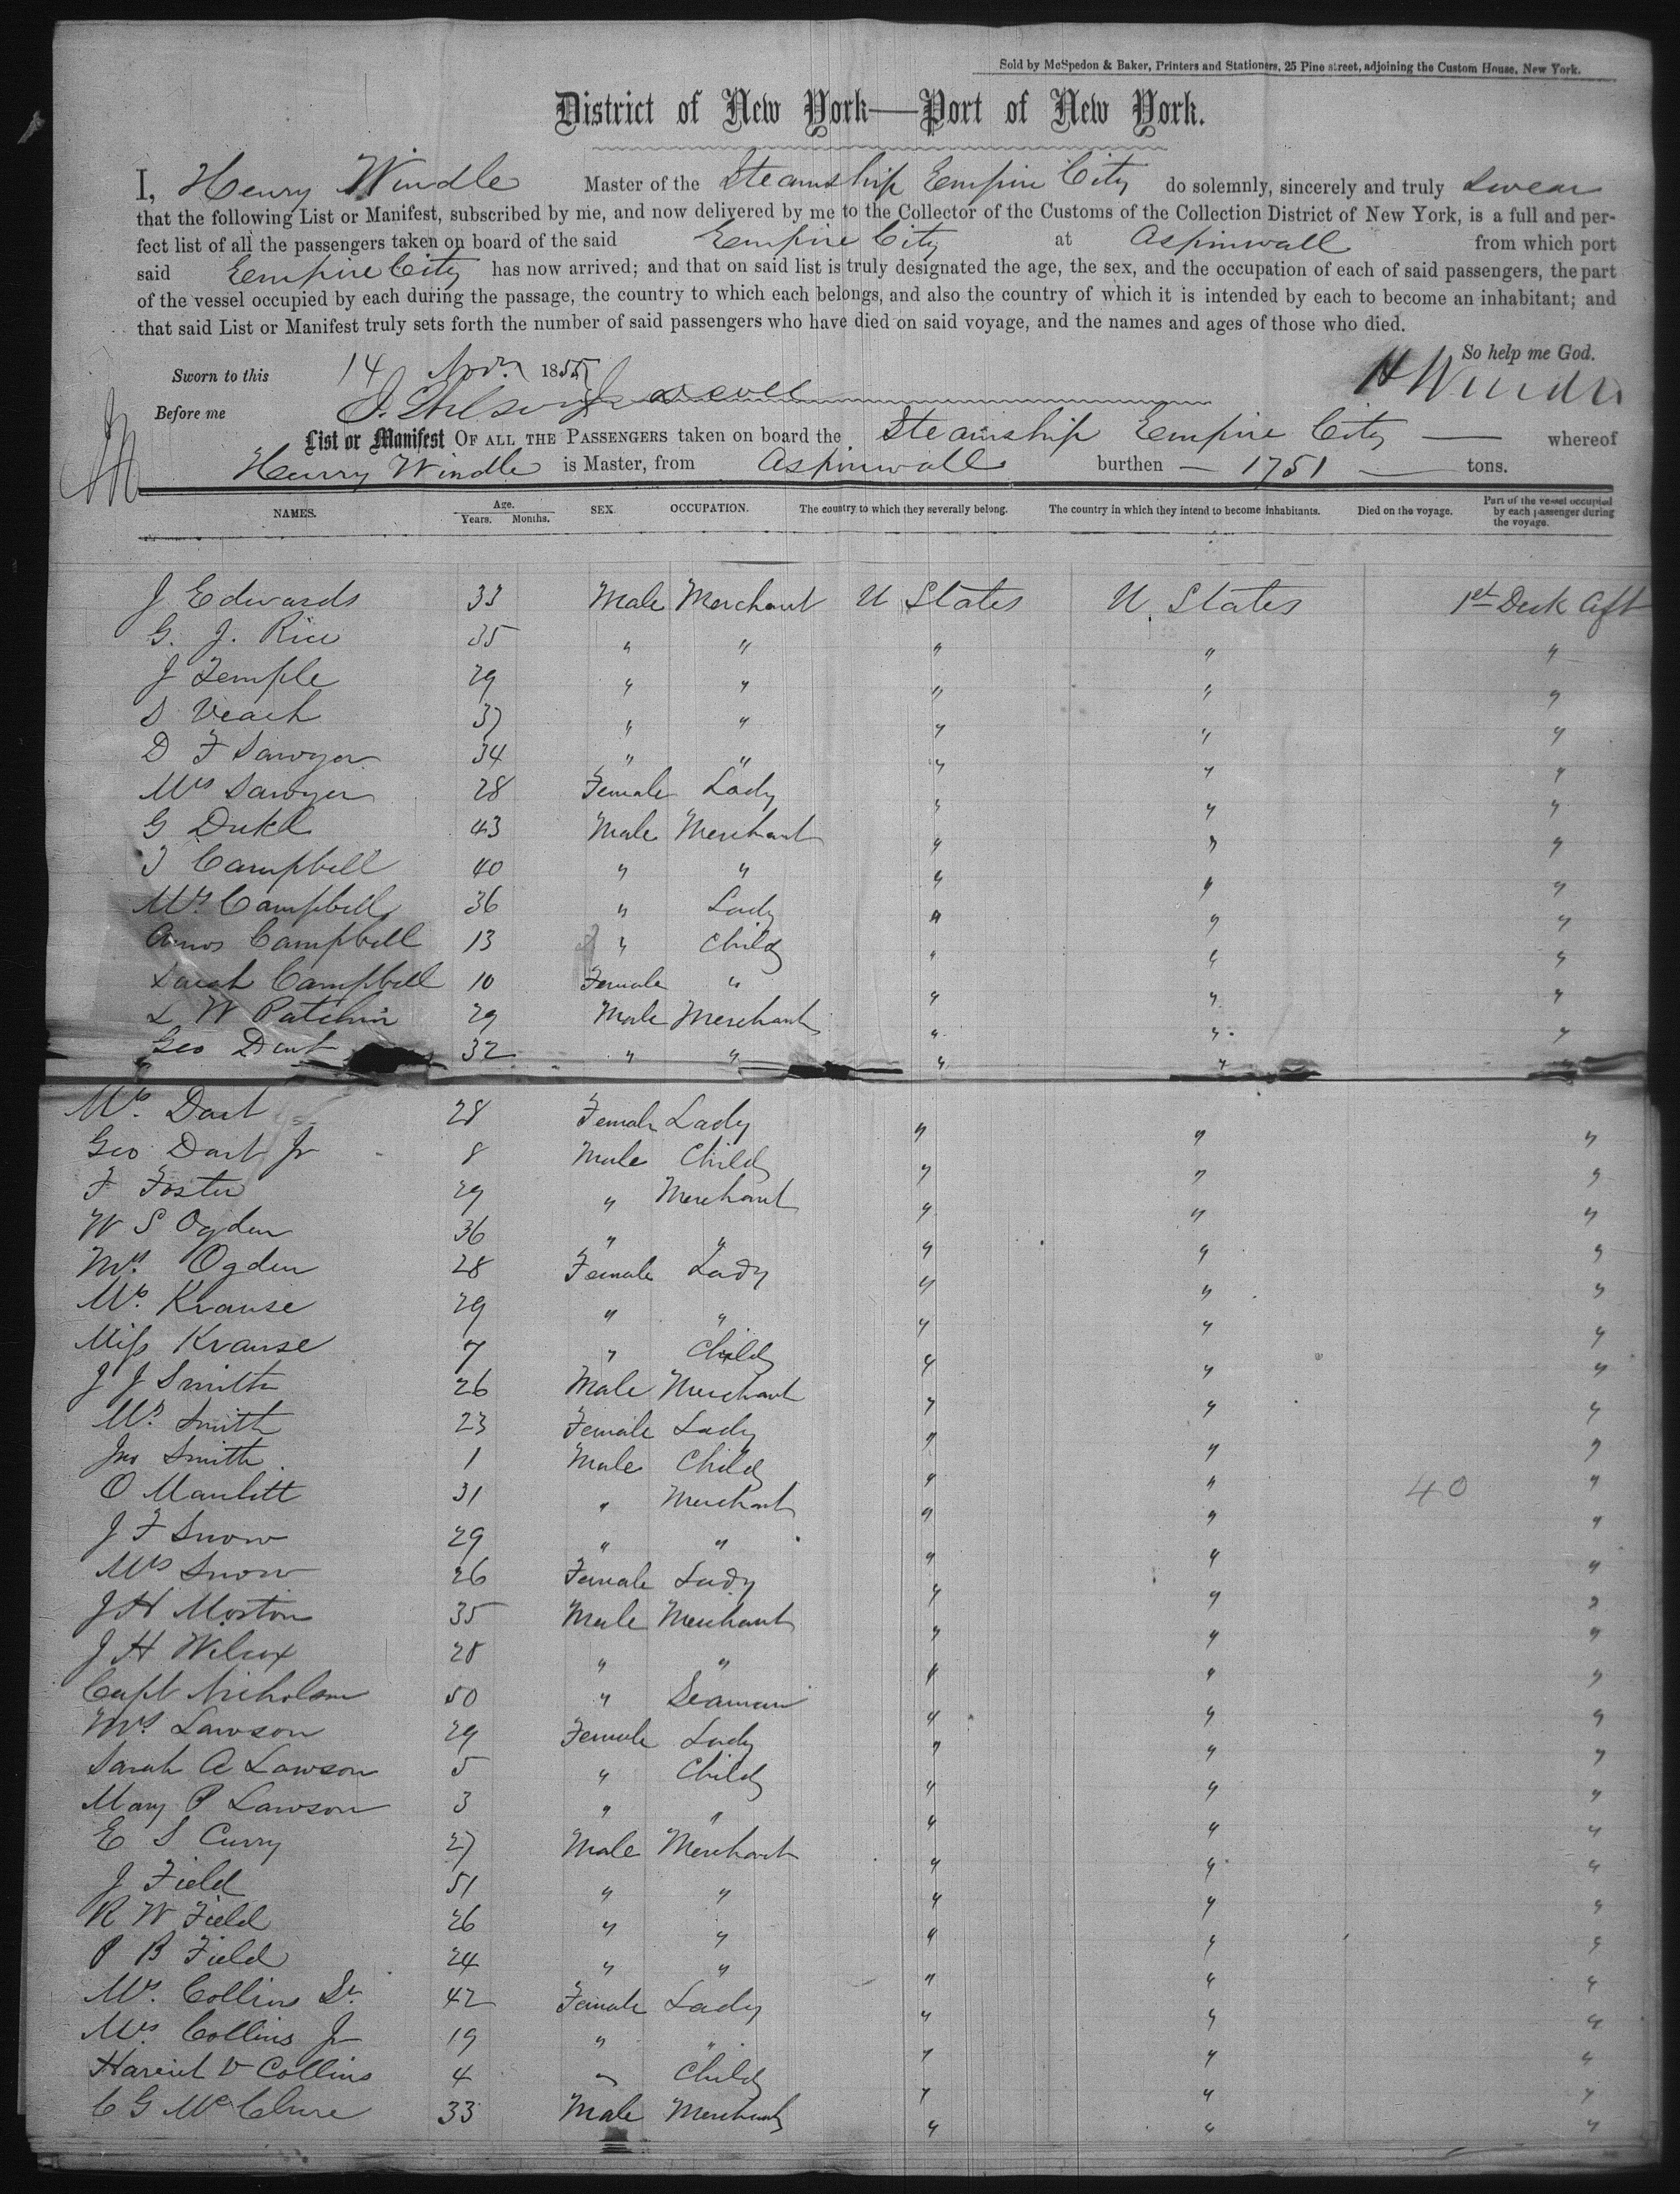 Sold by McSpedon & Baker, Printers and Stationers, 25 Pine street, adjoining the Custom House, New York.
District of New York—Port of New York.
I, Henry Windle Master of the Steamship Empire City do solemnly, sincerely and truly swear
that the following List or Manifest, subscribed by me, and now delivered by me to the Collector of the Customs of the Collection District of New York, is a full and per-
fect list of all the passengers taken on board of the said Empire City at Aspinwall from which port
said Empire City has now arrived; and that on said list is truly designated the age, the sex, and the occupation of each of said passengers, the part
of the vessel occupied by each during the passage, the country to which each belongs, and also the country of which it is intended by each to become an inhabitant; and
that said List or Manifest truly sets forth the number of said passengers who have died on said voyage, and the names and ages of those who died.
So help me God.
Sworn to this 14 Nov. 1855 H Windle
Before me
List or Manifest OF ALL THE PASSENGERS taken on board the Steamship Empire City — whereof
Henry Windle is Master, from Aspinwall burthen — 1751 — tons.
NAMES. Age. Years. Months. SEX. OCCUPATION. The country to which they severally belong. The country in which they intend to become inhabitants. Died on the voyage. Part of the vessel occupied by each passenger during the voyage.
J Edwards 33 Male Merchant U States U States 1st Deck Aft
G. J. Rice 35 " " " " "
J Temple 29 " " " " "
S Veach 37 " " " " "
D F Sawyer 34 " " " " "
Mrs Sawyer 28 Female Lady " " "
G Dukel 43 Male Merchant " " "
J Campbell 40 " " " " "
Mrs Campbell 36 " Lady " " "
Amos Campbell 13 " Child " " "
Sarah Campbell 10 Female " " " "
L W Patchin 29 Male Merchant " " "
Geo Dart 32 " " " " "
Mrs Dart 28 Female Lady " " "
Geo Dart Jr 8 Male Child " " "
F Foster 29 " Merchant " " "
W S Ogden 36 " " " " "
Mrs Ogden 28 Female Lady " " "
Mrs Krause 29 " " " " "
Miss Krause 7 " Child " " "
J J Smith 26 Male Merchant " " "
Mrs Smith 23 Female Lady " " "
Jno Smith 1 Male Child " " "
O Manlitt 31 " Merchant " " 40 "
J F Snow 29 " " " " "
Mrs Snow 26 Female Lady " " "
J H Morton 35 Male Merchant " " "
J H Wilcox 28 " " " " "
Capt Nicholson 50 " Seaman " " "
Mrs Lawson 29 Female Lady " " "
Sarah A Lawson 5 " Child " " "
Mary P Lawson 3 " " " " "
E S Curry 27 Male Merchant " " "
J Field 51 " " " " "
R W Field 26 " " " " "
P B Field 24 " " " " "
Mrs. Collins Sr. 42 Female Lady " " "
Mrs. Collins Jr 19 " " " " "
Harriet V Collins 4 " Child " " "
C G McClure 33 Male Merchant " " "